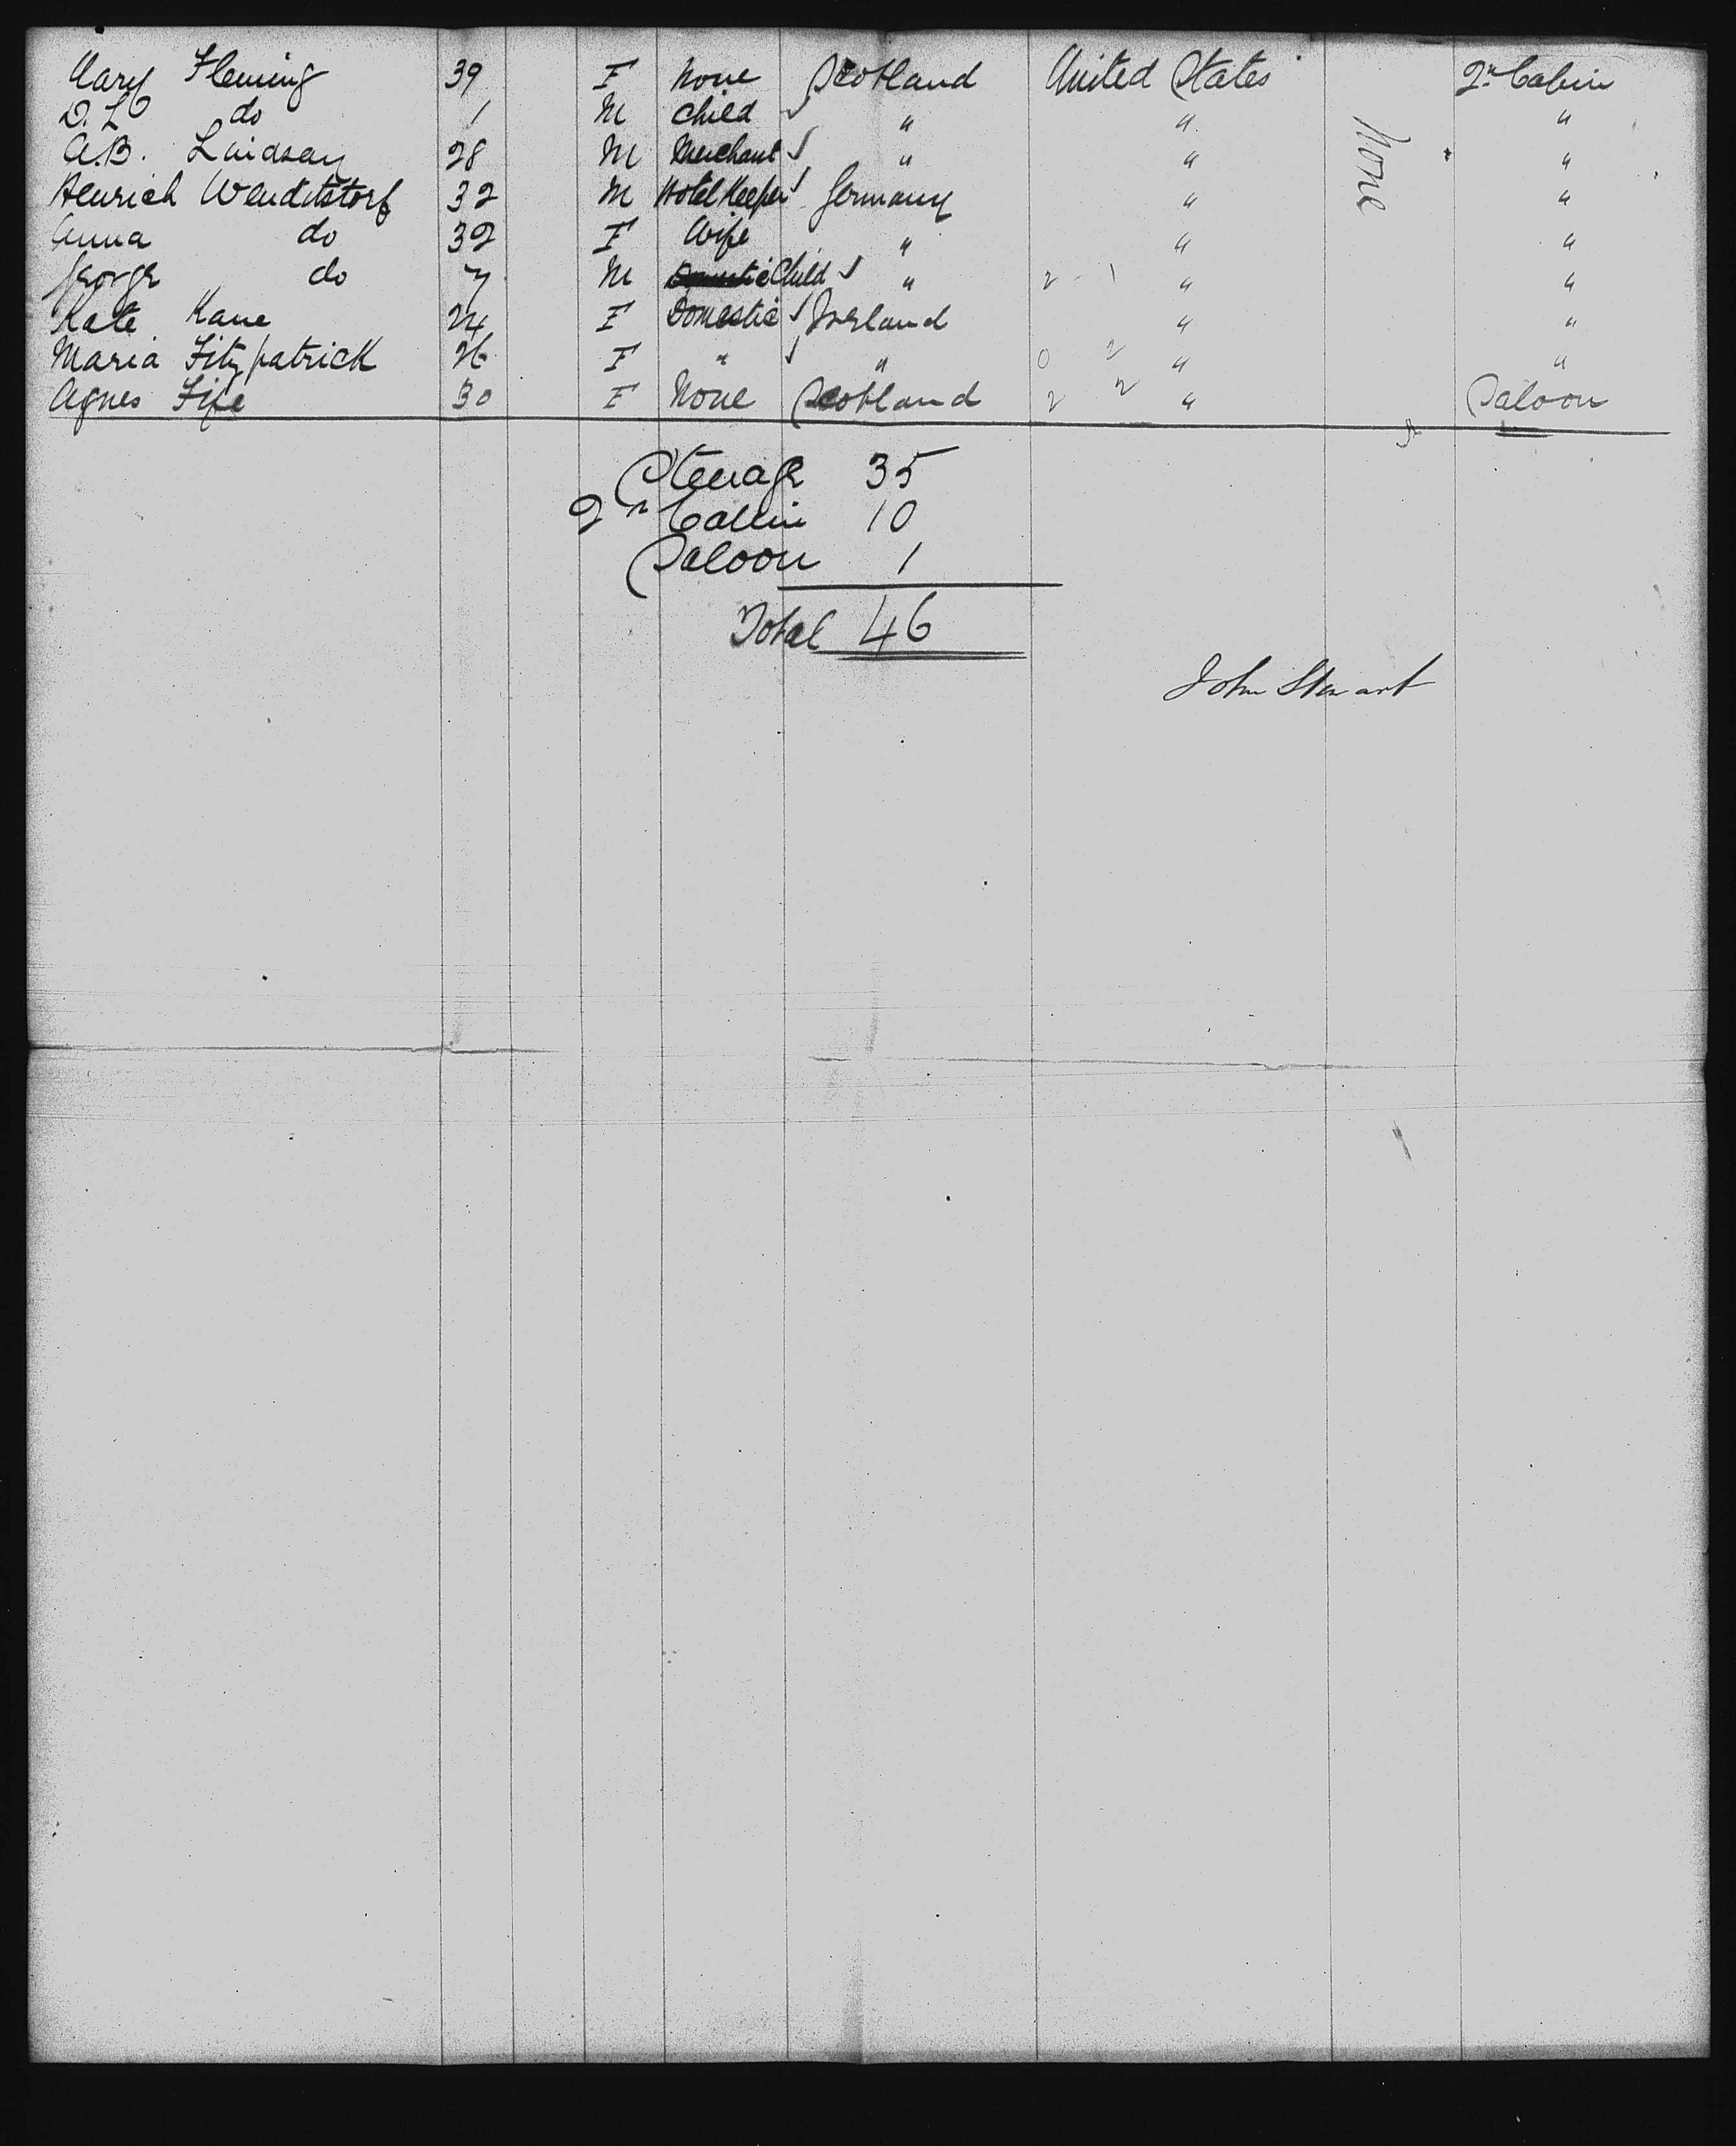 Mary Fleming 39 F None Scotland United States 2n Cabin
D. L do 1 M Child " " "
A.B. Lindsay 28 M Merchant " " "
Henrich Wenditstorf 32 M Hotel Keeper Germany " "
Anna do 32 F Wife " " "
George do 7 M Child " 2 - 1 " "
Kate Kane 24 F Domestic Ireland " "
Maria Fitzpatrick 26 F " " 0 2 " "
Agnes Fife 30 F None Scotland 2 2 " Saloon
None
Steerage 35
2n Cabin 10
Saloon 1
Total 46
John Stewart